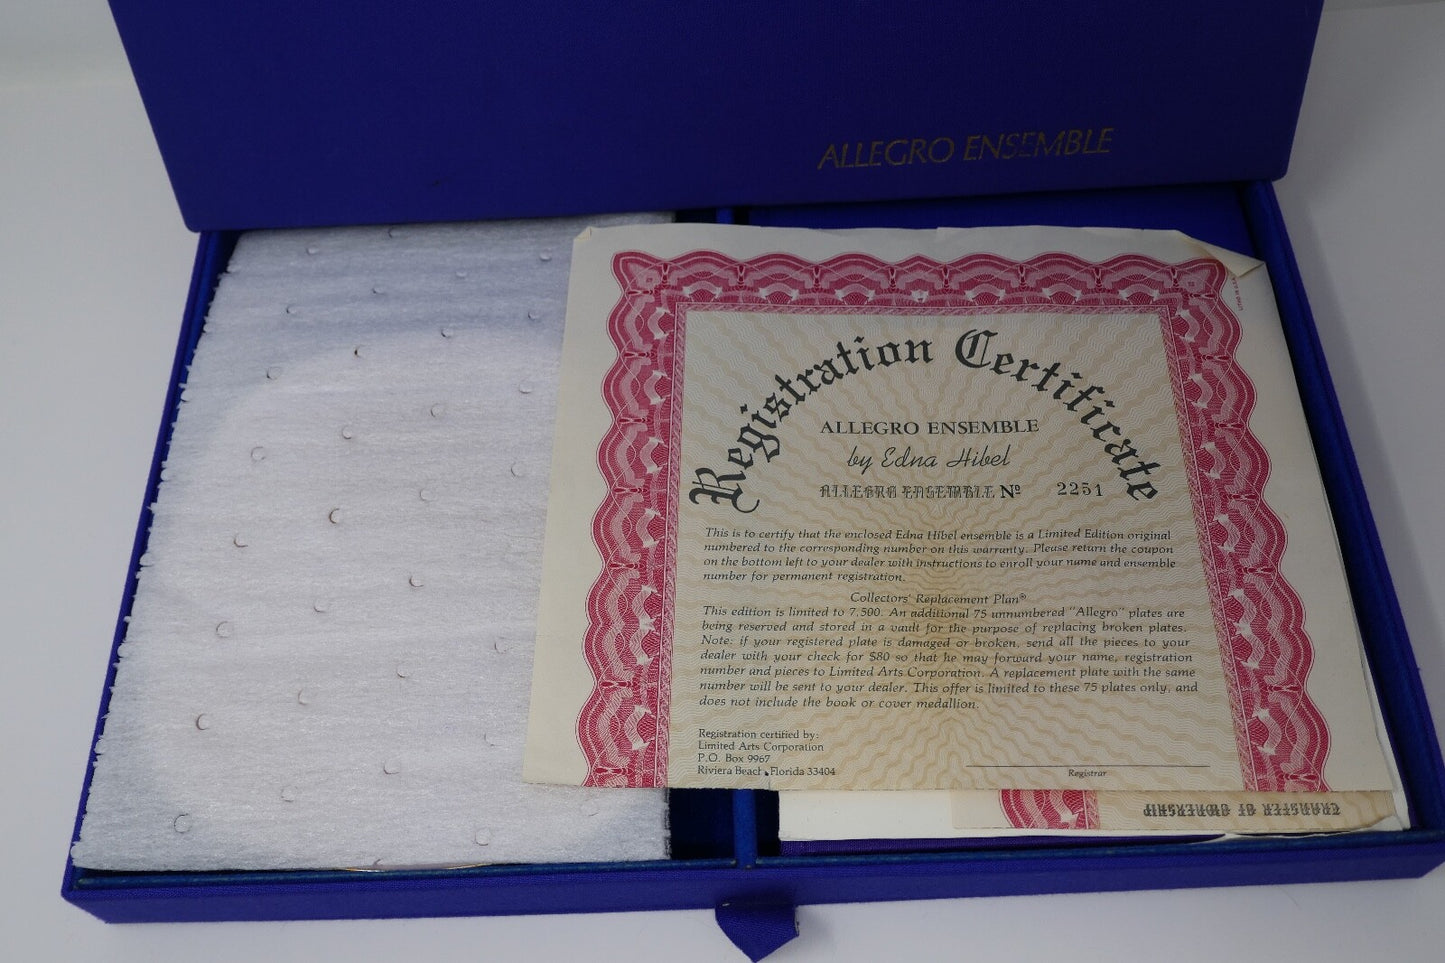 ALLEGRO ENSEMBLE
LITHO IN U.S.A.
Registration Certificate
ALLEGRO ENSEMBLE
by Edna Hibel
ALLEGRO ENSEMBLE Nº 2251
This is to certify that the enclosed Edna Hibel ensemble is a Limited Edition original
numbered to the corresponding number on this warranty. Please return the coupon
on the bottom left to your dealer with instructions to enroll your name and ensemble
number for permanent registration.
Collectors' Replacement Plan®
This edition is limited to 7,500. An additional 75 unnumbered "Allegro" plates are
being reserved and stored in a vault for the purpose of replacing broken plates.
Note: if your registered plate is damaged or broken, send all the pieces to your
dealer with your check for $80 so that he may forward your name, registration
number and pieces to Limited Arts Corporation. A replacement plate with the same
number will be sent to your dealer. This offer is limited to these 75 plates only, and
does not include the book or cover medallion.
Registration certified by:
Limited Arts Corporation
P.O. Box 9967
Riviera Beach, Florida 33404
Registrar
TRANSFER OF OWNERSHIP